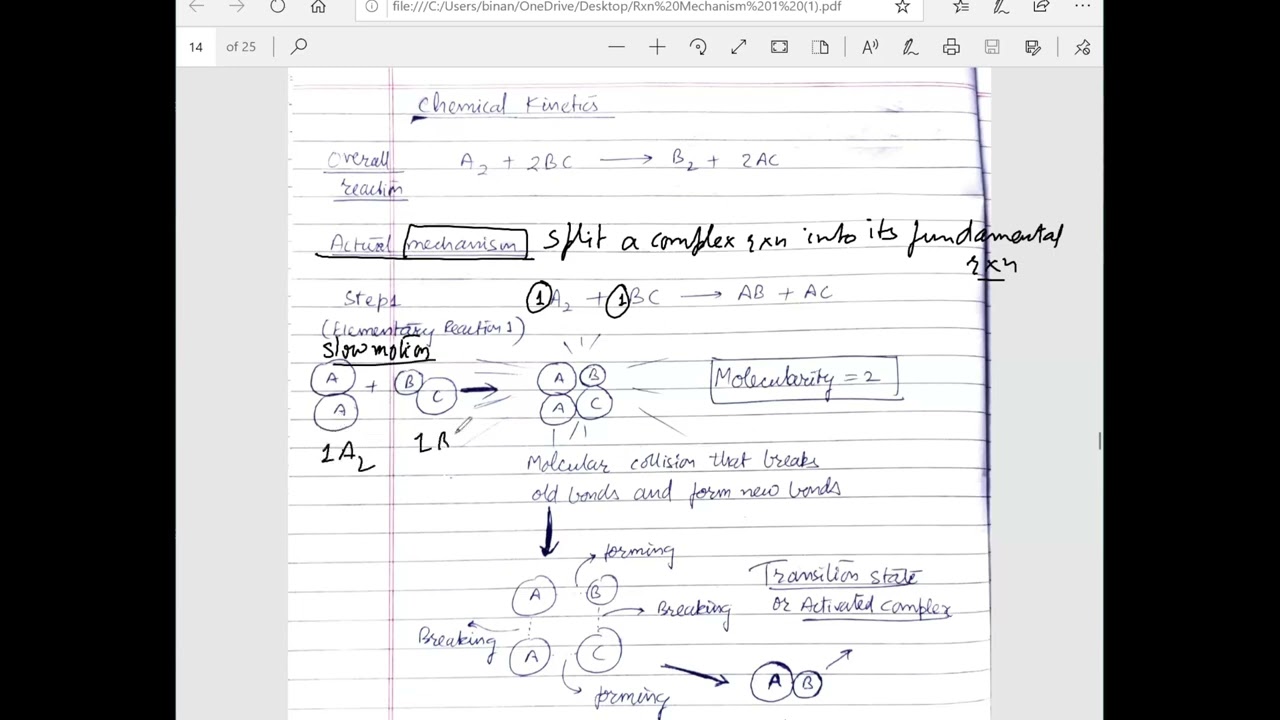 file:///C:/Users/binan/OneDrive/Desktop/Rxn%20Mechanism%201%20(1).pdf
14 of 25
Chemical Kinetics
Overall A₂ + 2BC ⟶ B₂ + 2AC
reaction
Actual mechanism split a complex rxn into its fundamental
rxn
Step 1 1A₂ + 1BC ⟶ AB + AC
(Elementary Reaction 1)
Slow motion
A + B C A B Molecularity = 2
A A C
1A₂ 1B
Molcular collision that breaks
old bonds and form new bonds
forming
A B Transition state
Breaking or Activated complex
Breaking
A C
A B
forming